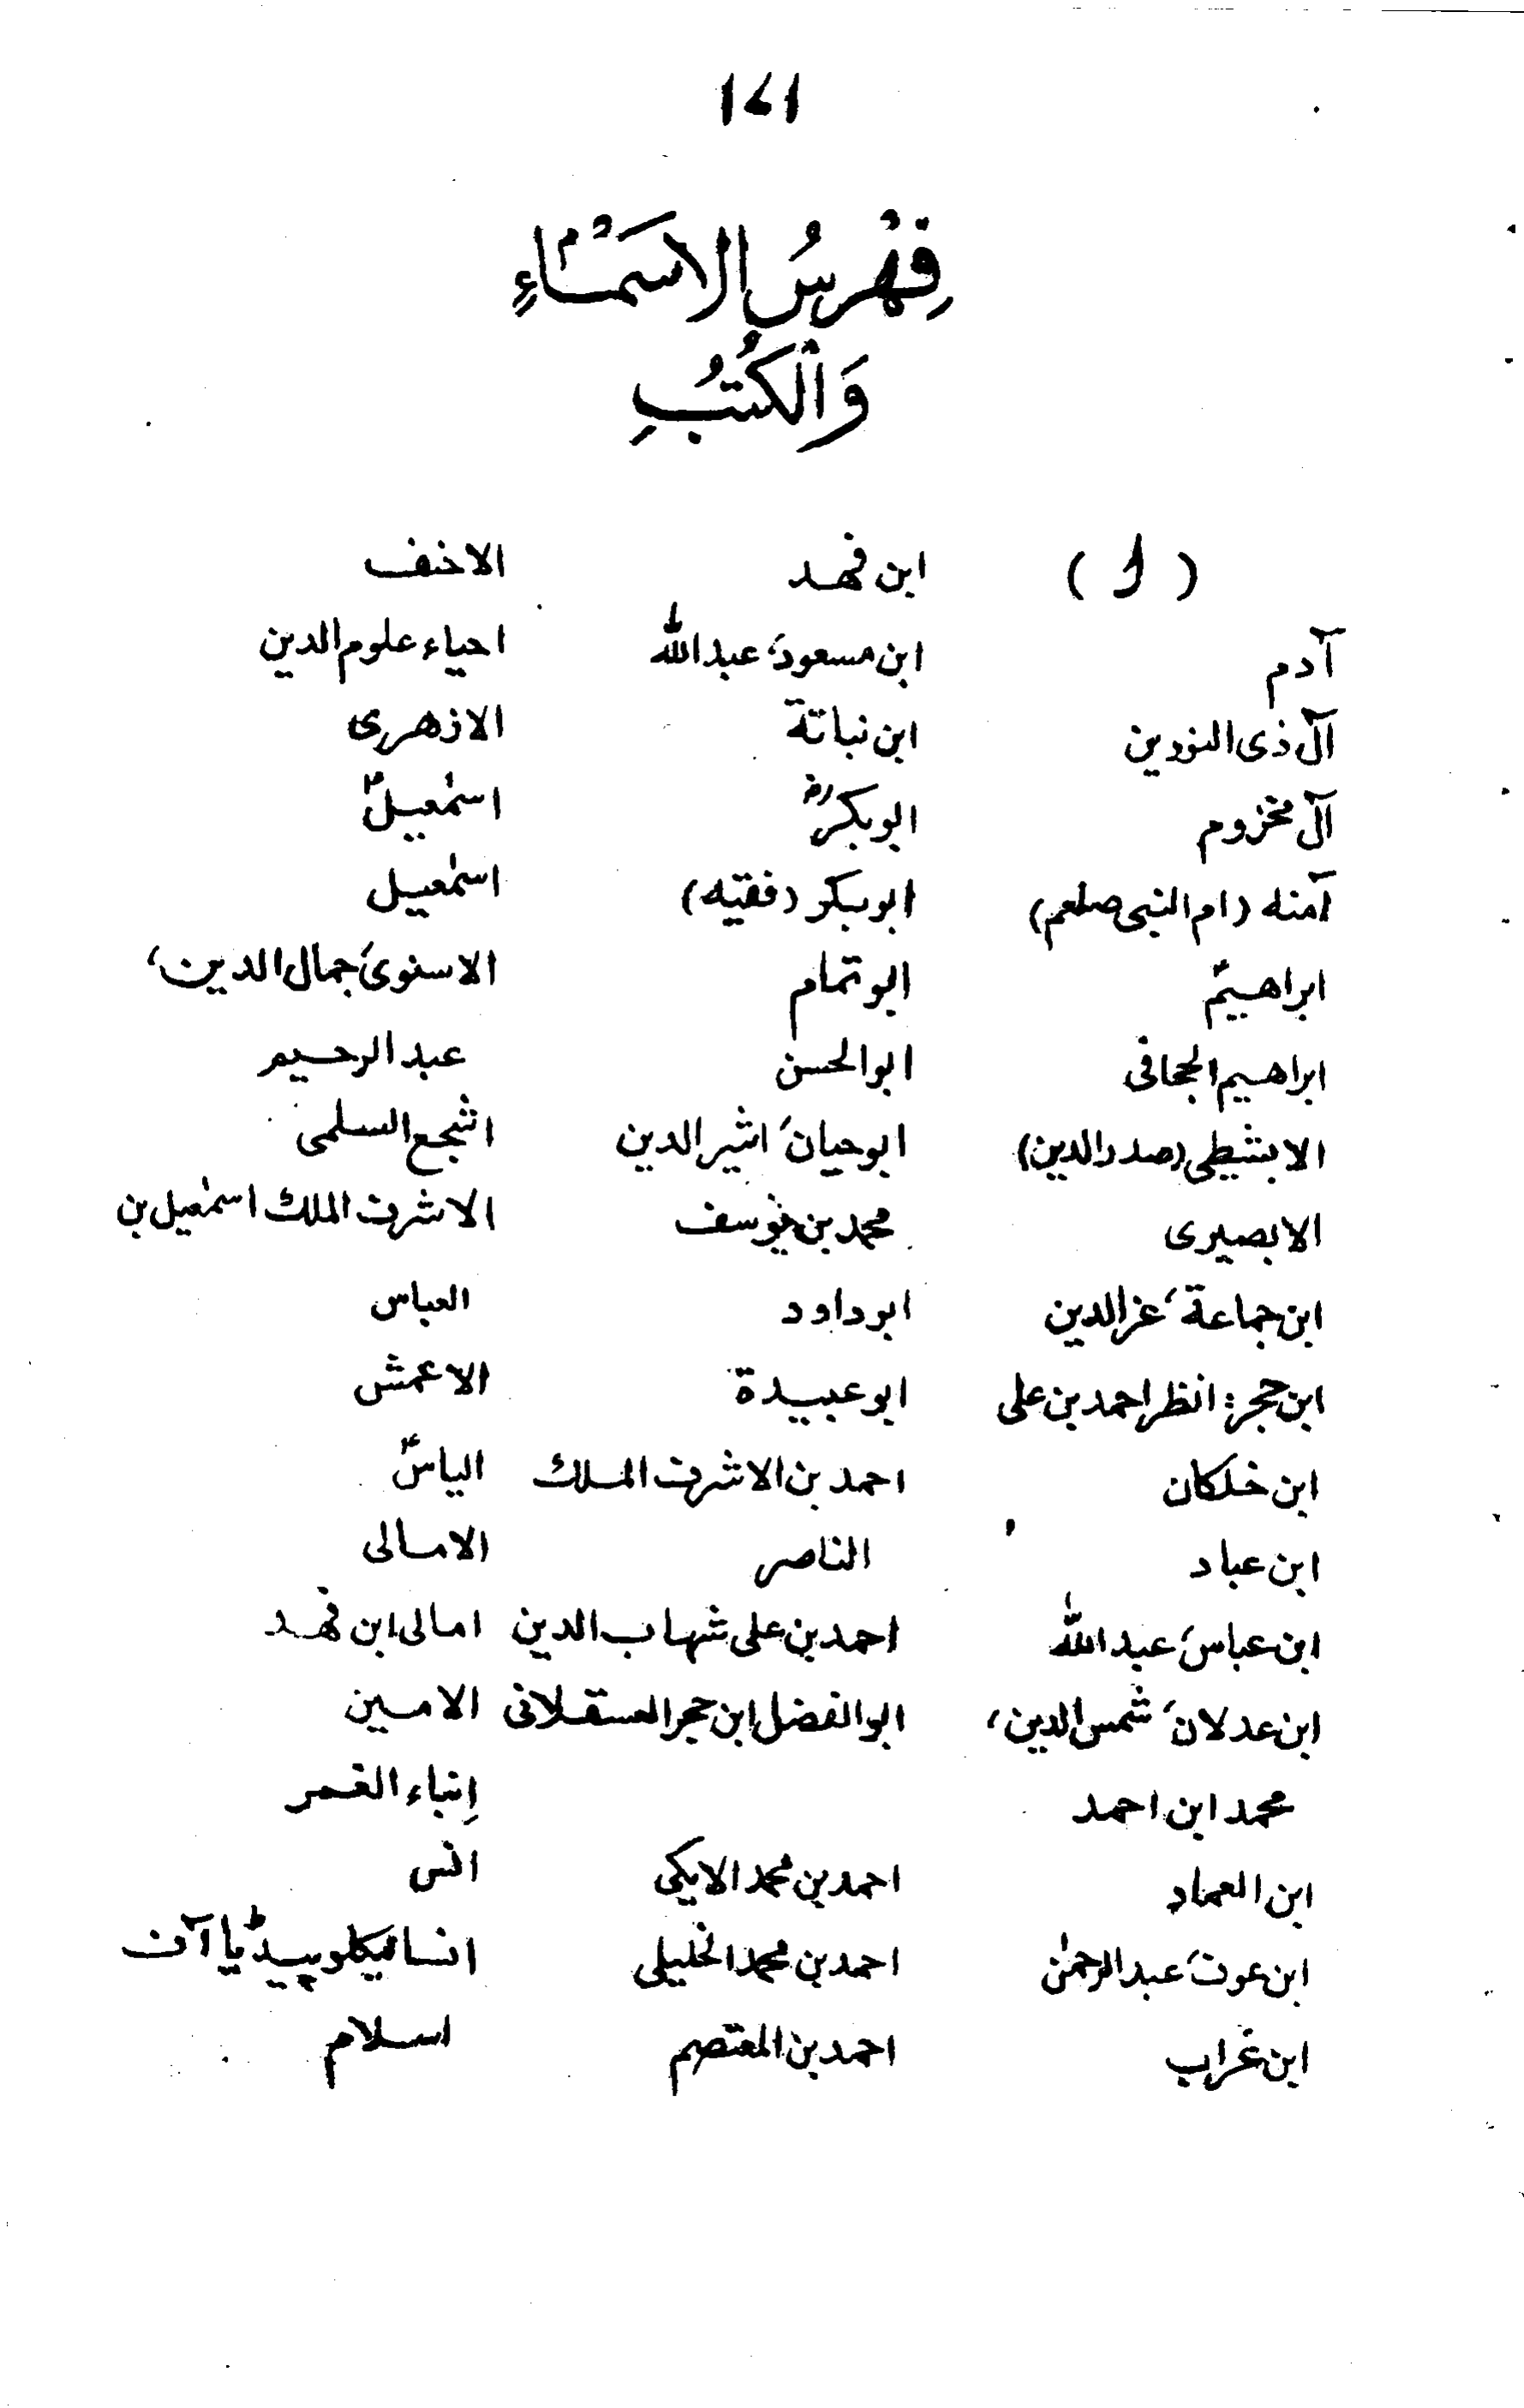 ۱۷۱
فِهْرِسُ الاَسْمَاءِ
وَالْكُتُبِ
( ا )
آدم
آل ذى النورين
آل مخزوم
آمنه (ام النبى صلعم)
ابراهيمؑ
ابراهيم الججافى
الابشيطى (صدر الدين)
الابصيرى
ابن جماعة، عز الدين
ابن حجر: انظر احمد بن على
ابن خلكان
ابن عباد
ابن عباس، عبد الله
ابن عدلان، شمس الدين،
محمد ابن احمد
ابن العماد
ابن عوف، عبد الرحمٰن
ابن غراب
ابن فهد
ابن مسعود، عبد الله
ابن نباتة
ابوبكرؓ
ابوبكر (فقيه)
ابو تمام
ابو الحسن
ابو حيان، اثير الدين
محمد بن يوسف
ابو داود
ابو عبيدة
احمد بن الاشرف الملك
الناصر
احمد بن على شهاب الدين
ابو الفضل ابن حجر العسقلانى
احمد بن محمد الايكى
احمد بن محمد الخليلى
احمد بن المعتصم
الاخنف
احياء علوم الدين
الازهرى
اسمٰعيلؑ
اسمٰعيل
الاسنوى، جمال الدين،
عبد الرحيم
اشجع السلمى
الاشرف الملك اسمٰعيل بن
العباس
الاعمش
الياسؑ
الامالى
امالى ابن فهد
الامين
اِنباء الغمر
انس
انسائيكلوپيڈيا آف
اسلام